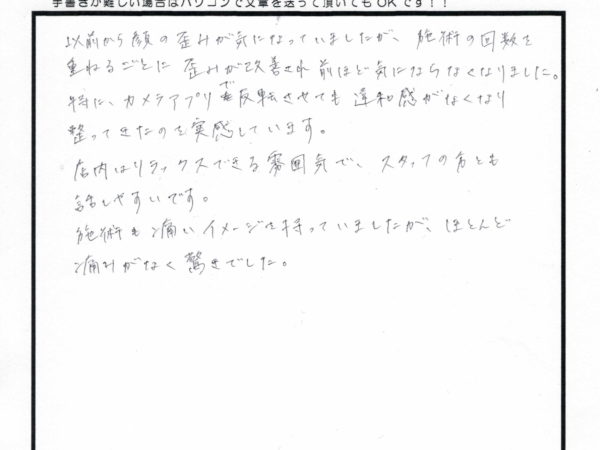 手書きが難しい場合はパソコンで文章を送って頂いてもOKです!!
以前から顔の歪みが気になっていましたが、施術の回数を
重ねるごとに歪みが改善され前ほど気にならなくなりました。
特に、カメラアプリで反転させても違和感がなくなり
整ってきたのを実感しています。
店内はリラックスできる雰囲気で、スタッフの方とも
話しやすいです。
施術も痛いイメージを持っていましたが、ほとんど
痛みがなく驚きでした。